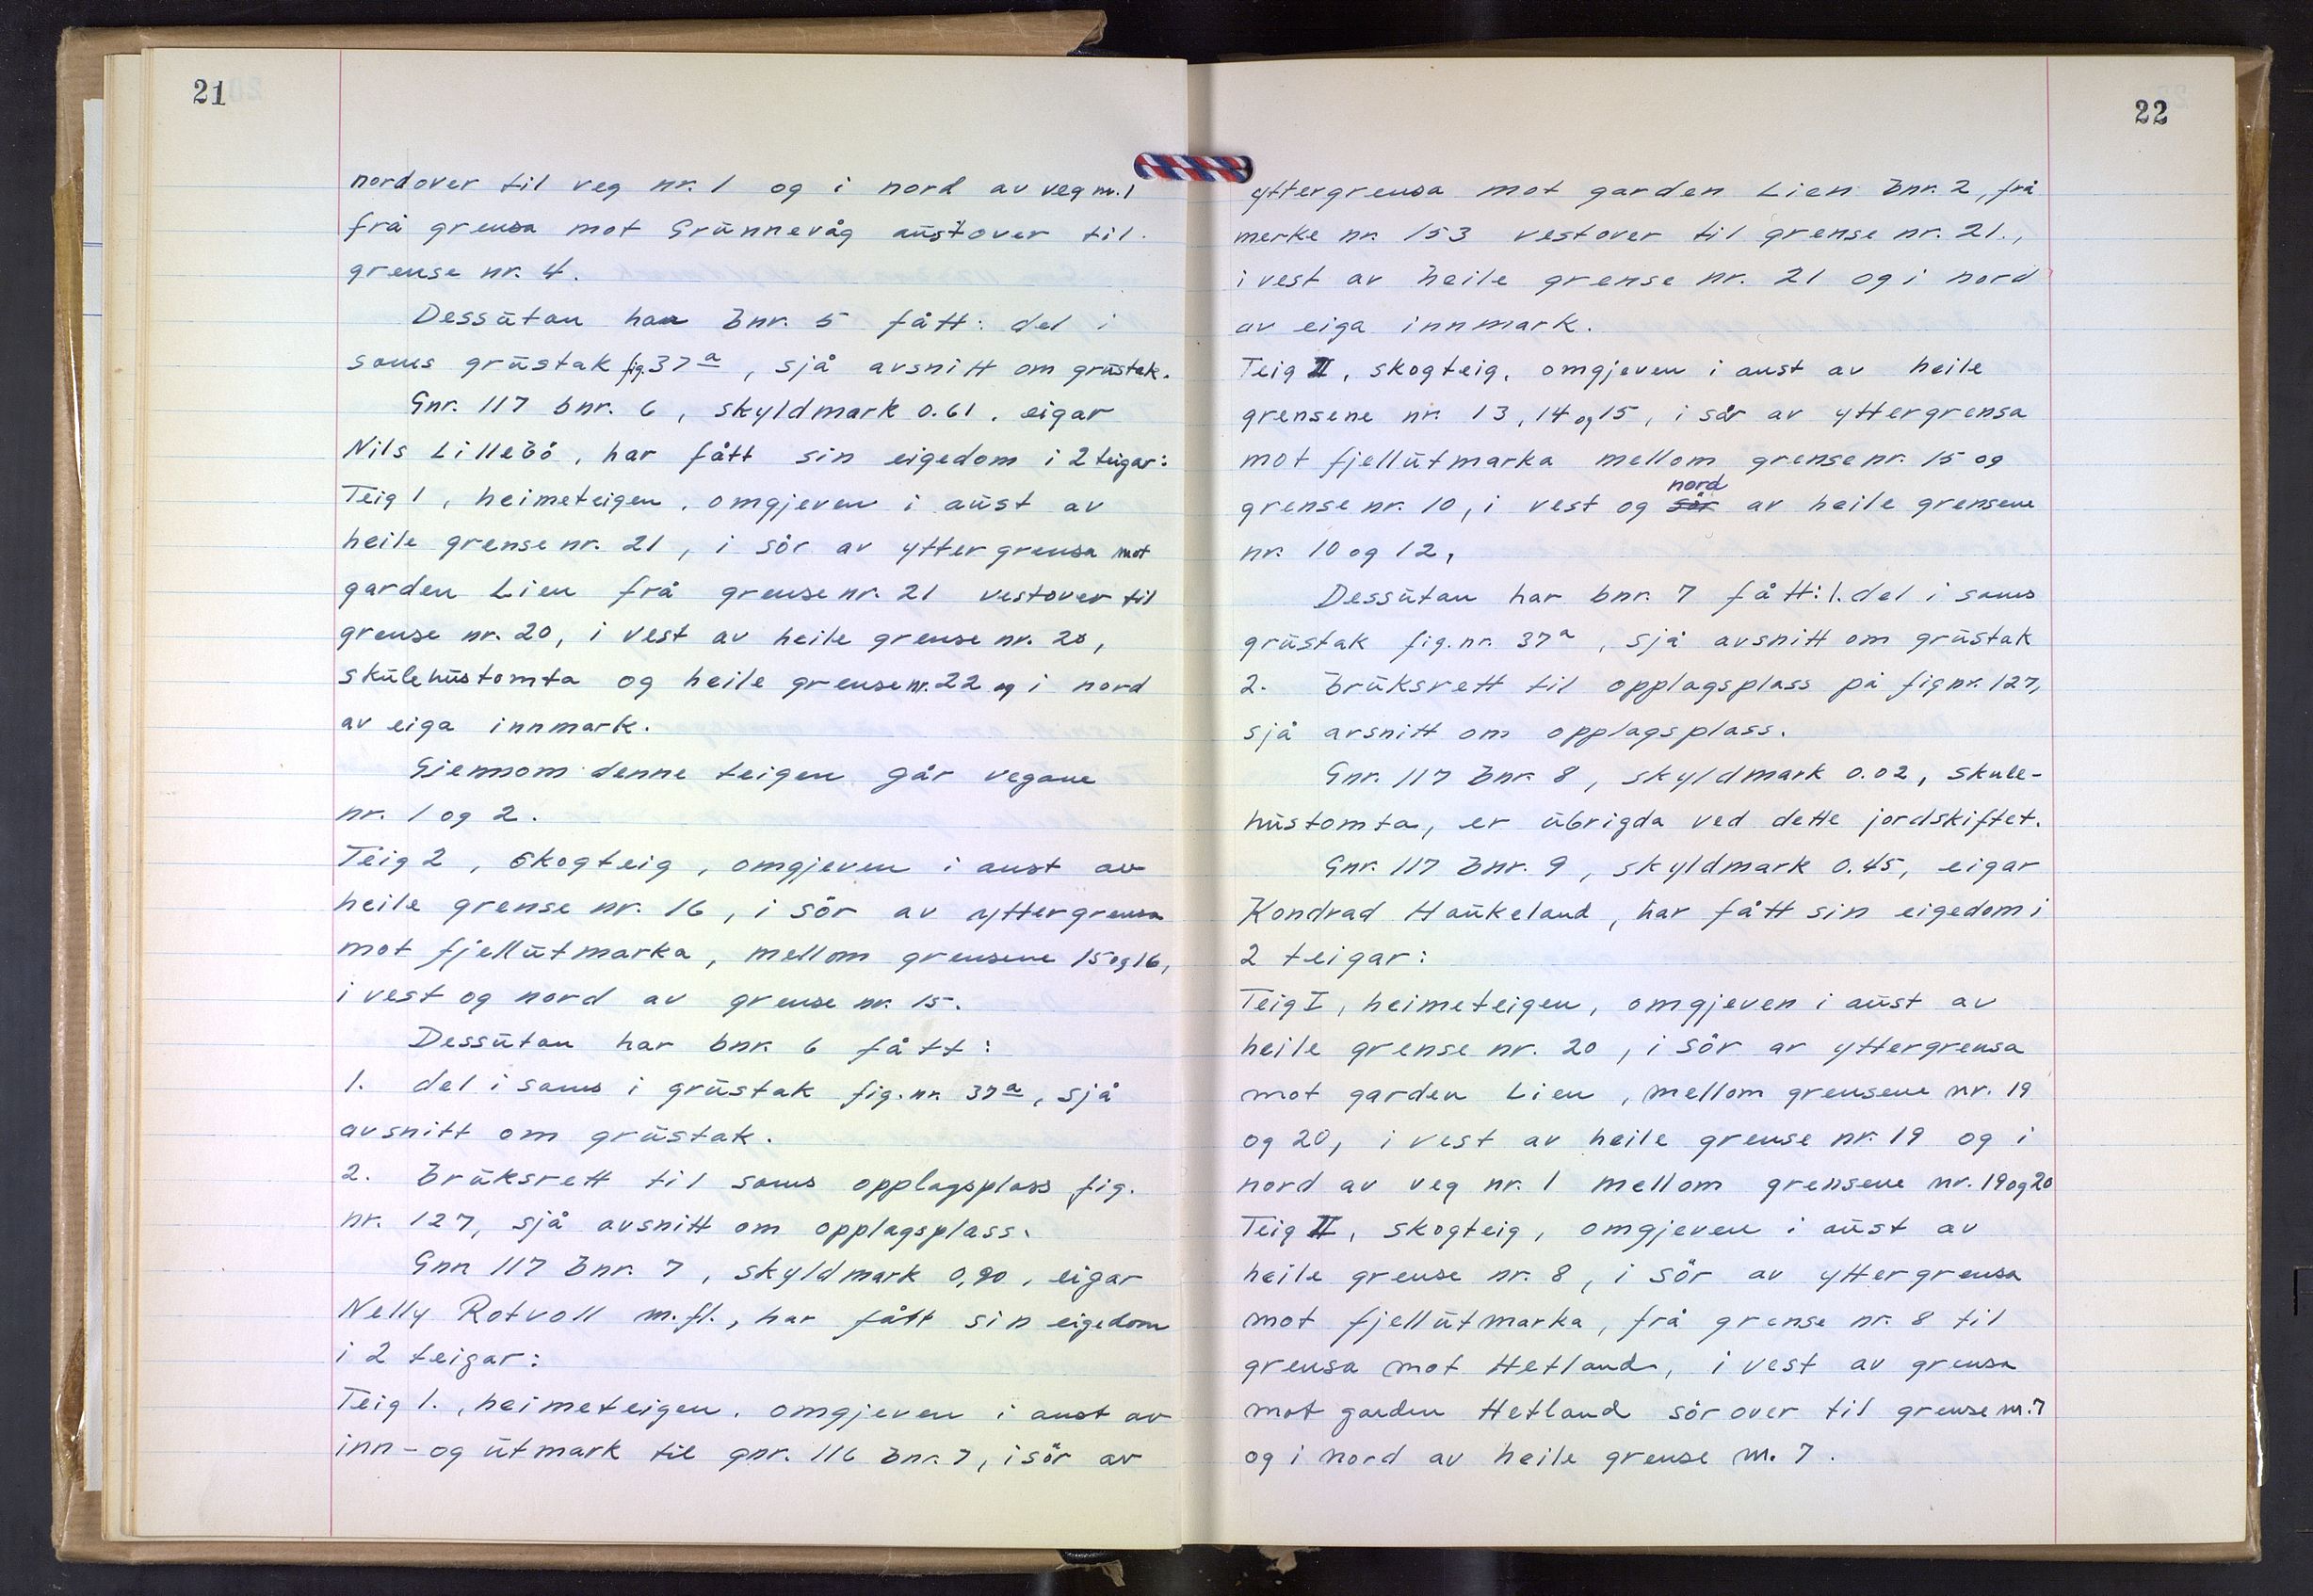 21
nordover til veg nr. 1 og i nord av veg nr. 1
frå grensa mot Grunnevåg austover til
grense nr. 4.
Dessutan har bnr. 5 fått: del i
sams grustak fig. 37a, sjå avsnitt om grustak.
Gnr. 117 bnr. 6, skyldmark 0.61. eigar
Nils Lillebö, har fått sin eigedom i 2 teigar:
Teig 1, heimeteigen. omgjeven i aust av
heile grense nr. 21, i sör av yttergrensa mot
garden Lien frå grense nr. 21 vestover til
grense nr. 20, i vest av heile grense nr. 20,
skulehustomta og heile grense nr. 22 og i nord
av eiga innmark.
Gjennom denne teigen går vegane
nr. 1 og 2.
Teig 2, skogteig, omgjeven i aust av
heile grense nr. 16, i sör av yttergrensa
mot fjellutmarka, mellom grensene 15 og 16,
i vest og nord av grense nr. 15.
Dessutan har bnr. 6 fått:
1. del i sams i grustak fig. nr. 37a, sjå
avsnitt om grustak.
2. bruksrett til sams opplagsplass fig.
nr. 127, sjå avsnitt om opplagsplass.
Gnr. 117 bnr. 7, skyldmark 0,90. eigar
Nelly Rotvoll m.fl., har fått sin eigedom
i 2 teigar:
Teig 1., heimeteigen. omgjeven i aust av
inn- og utmark til gnr. 116 bnr. 7, i sör av
22
yttergrensa mot garden Lien bnr. 2, frå
merke nr. 153 vestover til grense nr. 21.,
i vest av heile grense nr. 21 og i nord
av eiga innmark.
Teig II, skogteig, omgjeven i aust av heile
grensene nr. 13, 14 og 15, i sör av yttergrensa
mot fjellutmarka mellom grense nr. 15 og
grense nr. 10, i vest og sör nord av heile grensene
nr. 10 og 12,
Dessutan har bnr. 7 fått: 1. del i sams
grustak fig. nr. 37a, sjå avsnitt om grustak
2. bruksrett til opplagsplass på fig nr. 127,
sjå avsnitt om opplagsplass.
Gnr. 117 bnr. 8, skyldmark 0.02, skule-
hustomta, er übrigda ved dette jordskiftet.
Gnr. 117 bnr. 9, skyldmark 0.45, eigar
Kondrad Haukeland, har fått sin eigedom i
2 teigar:
Teig I, heimeteigen, omgjeven i aust av
heile grense nr. 20, i sör av yttergrensa
mot garden Lien, mellom grensene nr. 19
og 20, i vest av heile grense nr. 19 og i
nord av veg nr. 1 mellom grensene nr. 19 og 20
Teig II, skogteig, omgjeven i aust av
heile grense nr. 8, i sör av yttergrensa
mot fjellutmarka, frå grense nr. 8 til
grensa mot Hetland, i vest av grensa
mot garden Hetland sörover til grense nr. 7
og i nord av heile grense nr. 7.